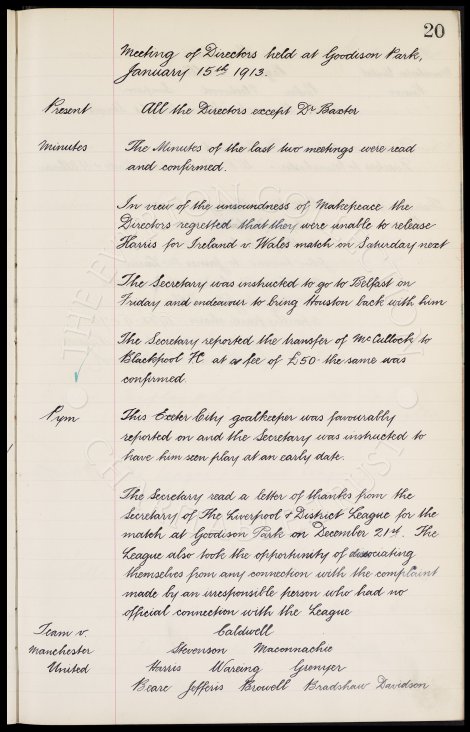 20
Meeting of Directors held at Goodison Park,
January 15th 1913.
Present All the Directors except Dr Baxter
Minutes The Minutes of the last two meetings were read
and confirmed.
In view of the unsoundness of Makepeace the
Directors regretted that they were unable to release
Harris for Ireland v Wales match on Saturday next
The Secretary was instructed to go to Belfast on
Friday and endeavour to bring Houston back with him
The Secretary reported the transfer of McCullock to
Blackpool FC at a fee of £50. the same was
confirmed.
Pym This Exeter City goalkeeper was favourably
reported on and the Secretary was instructed to
have him seen play at an early date.
The Secretary read a letter of thanks from the
Secretary of The Liverpool & District League for the
match at Goodison Park on December 21st. The
League also took the opportunity of dissociating
themselves from any connection with the complaint
made by an irresponsible person who had no
official connection with the League
Team v. Caldwell
Manchester Stevenson Maconnachie
United Harris Wareing Grenyer
Beare Jefferis Browell Bradshaw Davidson